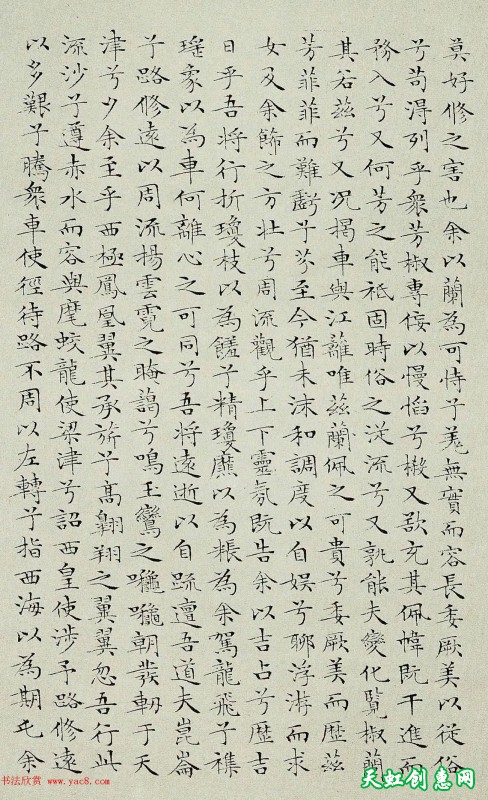 莫好修之害也余以蘭為可恃兮羌無實而容長委厥美以從俗
兮苟得列乎衆芳椒專佞以慢慆兮樧又欲充其佩幃既干進而
務入兮又何芳之能祗固時俗之從流兮又孰能夫變化覽椒蘭
其若茲兮又況揭車與江蘺唯茲蘭佩之可貴兮委厥美而歷茲
芳菲菲而難虧兮芬至今猶未沬和調度以自娛兮聊浮游而求
女及余飾之方壯兮周流觀乎上下靈氛既告余以吉占兮歷吉
日乎吾將行折瓊枝以為饈兮精瓊爢以為粻為余駕龍飛兮襍
瑤象以為車何離心之可同兮吾將遠逝以自疏邅吾道夫崑崙
兮路修遠以周流揚雲霓之晻藹兮鳴玉鸞之啾啾朝發軔于天
津兮夕余至乎西極鳳凰翼其承旂兮高翱翔之翼翼忽吾行此
流沙兮遵赤水而容與麾蛟龍使梁津兮詔西皇使涉予路修遠
以多艱兮騰衆車使徑待路不周以左轉兮指西海以為期屯余
书法欣赏 www.yac8.com
天虹创惠网